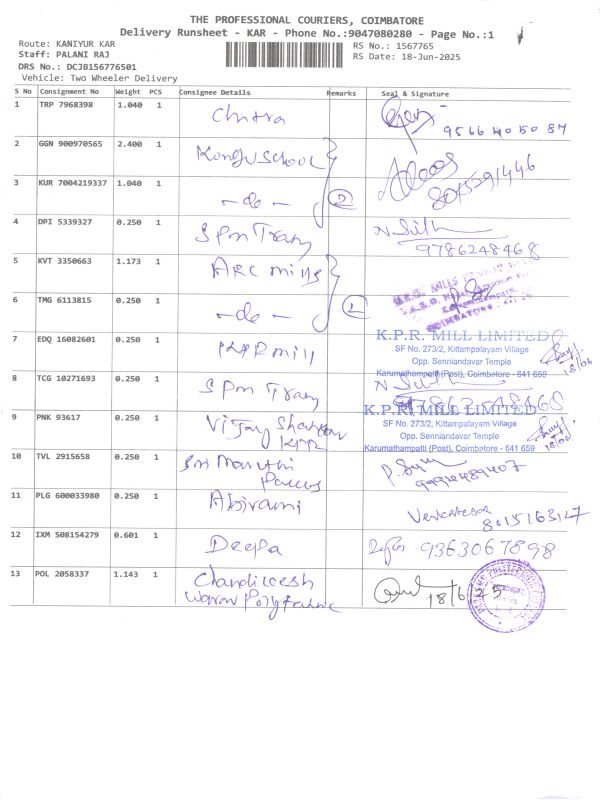 THE PROFESSIONAL COURIERS, COIMBATORE
Delivery Runsheet - KAR - Phone No.:9047080280 - Page No.:1
Route: KANIYUR KAR
RS No.: 1567765
Staff: PALANI RAJ
RS Date: 18-Jun-2025
DRS No.: DCJB156776501
Vehicle: Two Wheeler Delivery
S No Consignment No Weight PCS Consignee Details Remarks Seal & Signature
1 TRP 7968398 1.040 1 Chitra
2 GGN 900970565 2.400 1 Kongu School
8015291446
3 KUR 7004219337 1.040 1 -do- 2
4 DPI 5339327 0.250 1 S Pm Trary
9786248468
5 KVT 3350663 1.173 1 ARC mills
6 TMG 6113815 0.250 1 -do-
COIMBATORE
7 EDQ 16082601 0.250 1 KPR mill
K.P.R. MILL LIMITED
SF No. 273/2, Kittampalayam Village
Opp. Senniandavar Temple
Karumathampatti (Post), Coimbatore - 641 659
18/06
8 TCG 10271693 0.250 1 S Pm Trary
9 PNK 93617 0.250 1 Vijay Shankar
KPR
K.P.R. MILL LIMITED
SF No. 273/2, Kittampalayam Village
Opp. Senniandavar Temple
Karumathampatti (Post), Coimbatore - 641 659
18/06
10 TVL 2915658 0.250 1 Sri Maruthi
11 PLG 600033980 0.250 1 Abirami
12 IXM 508154279 0.601 1 Deepa 9363067898
13 POL 2058337 1.143 1 Chandileesh
18/6/25